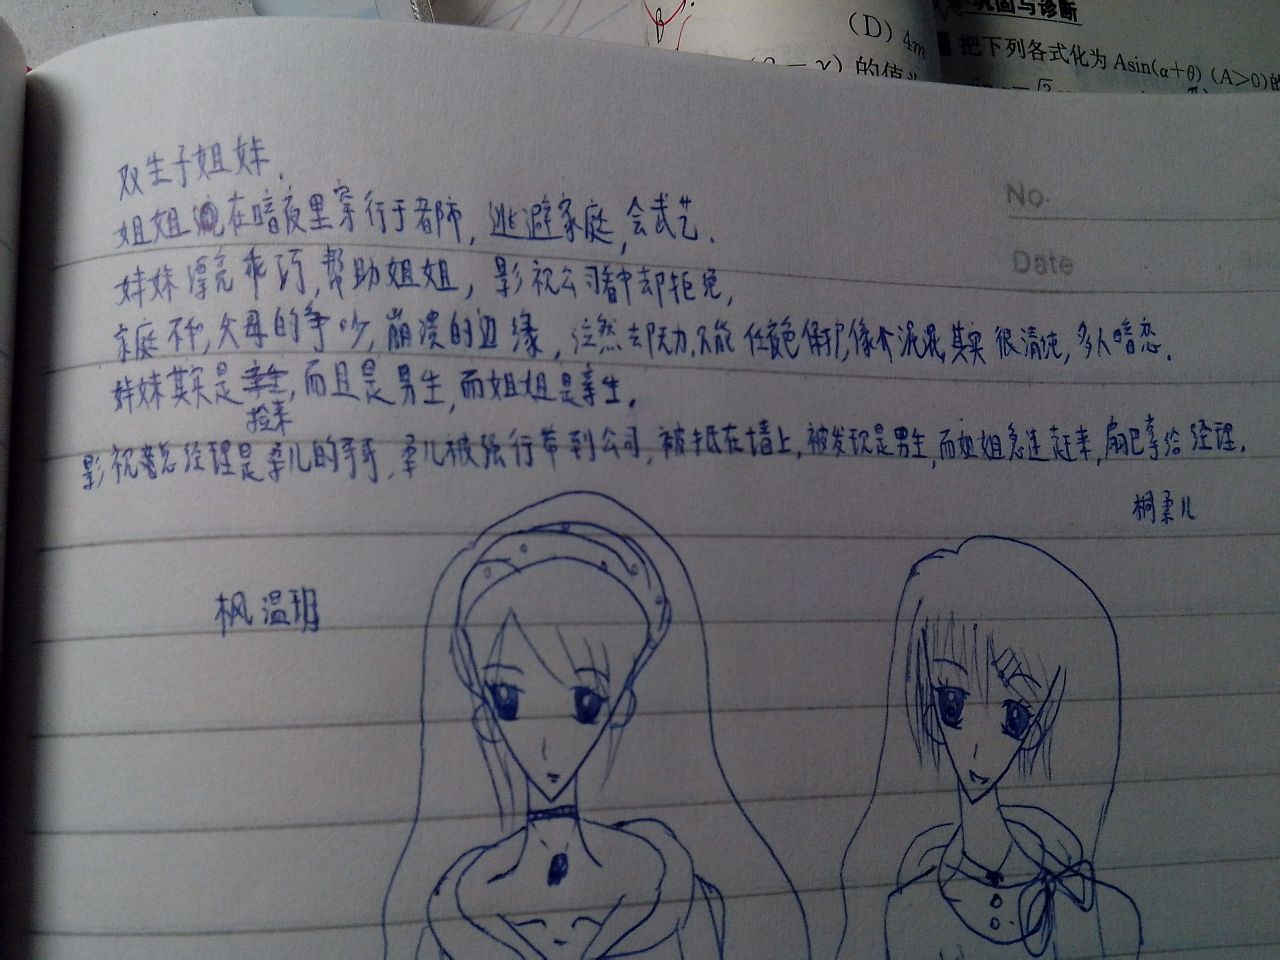 (D) 4m
的值
巩固与诊断
把下列各式化为 Asin(α+θ) (A>0)的
No.
Date
双生子姐妹.
姐姐 在暗夜里穿行于都市, 逃避家庭, 会武艺.
妹妹漂亮乖巧, 帮助姐姐, 影视公司看中却拒绝,
家庭不和, 父母的争吵, 崩溃的边缘, 然却无力, 只能 保护, 其实很清纯, 多人暗恋.
妹妹其实是亲生, 而且是男生, 而姐姐是亲生.
捡来
影视总经理是柔儿的哥哥, 柔儿被强行带到公司, 被抵在墙上, 被发现是男生, 而姐姐急速赶来, 扇巴掌给经理.
桐柔儿
枫温玥